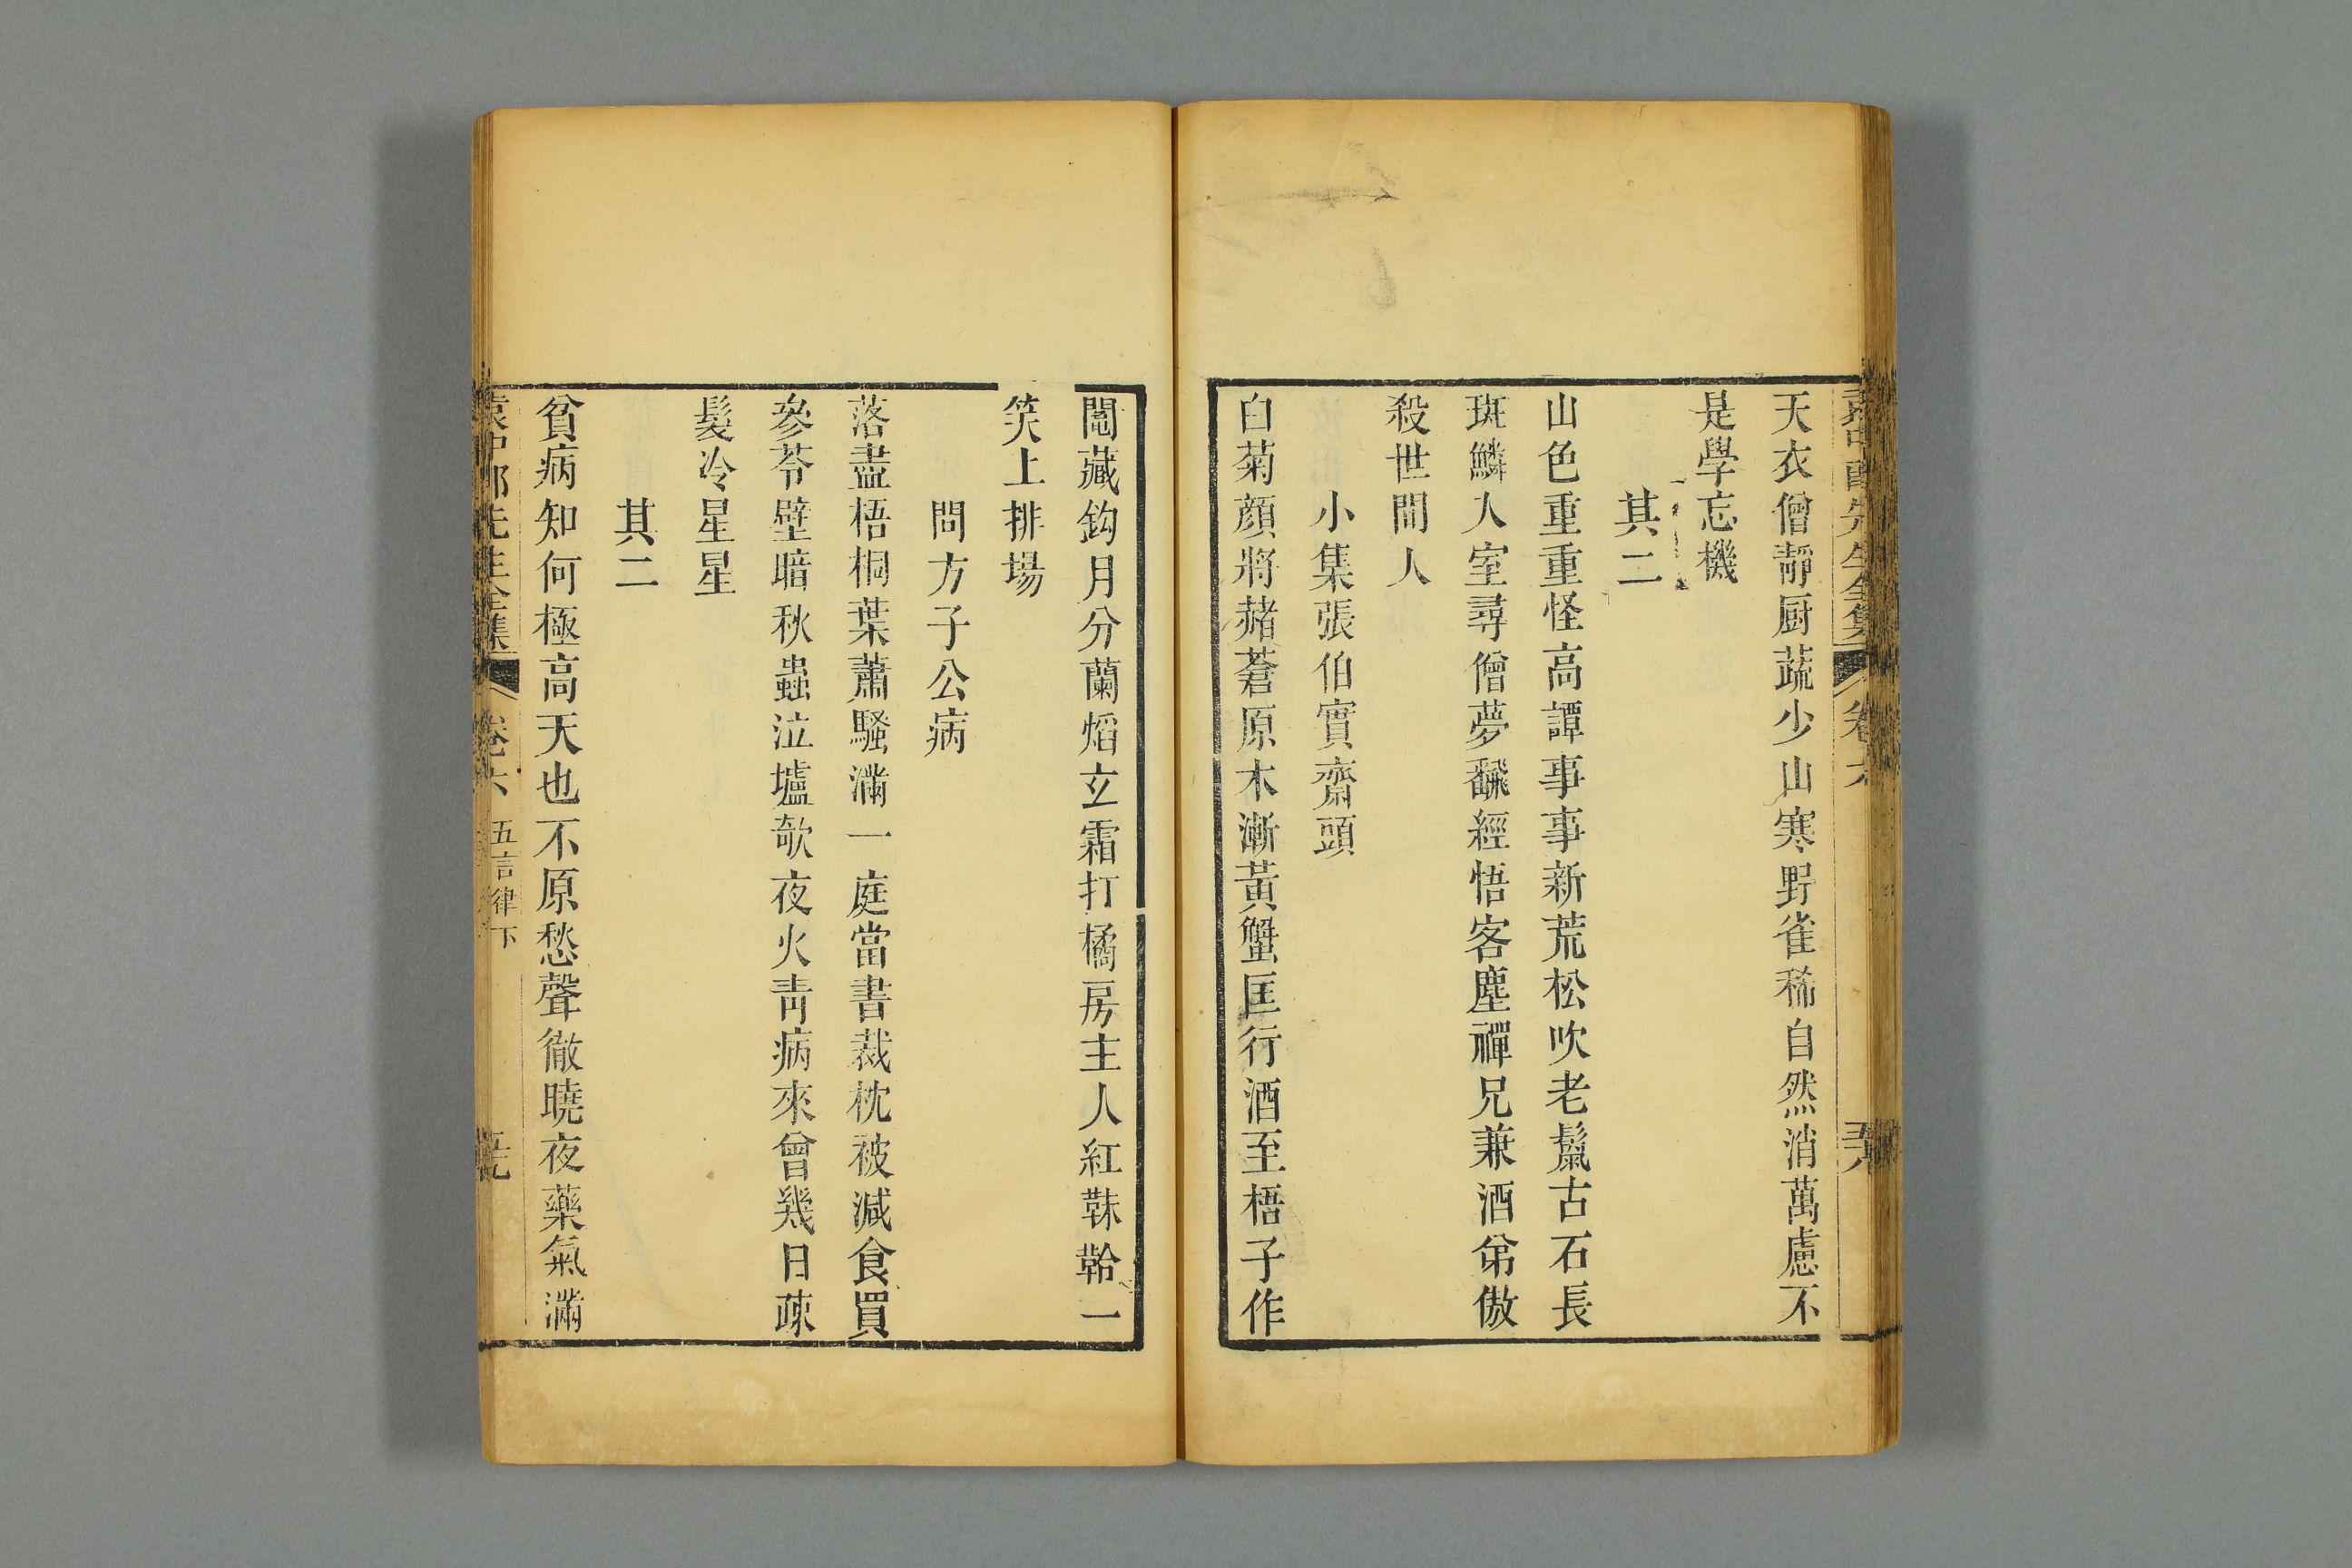 天衣僧靜厨蔬少山寒野雀稀自然消萬慮不
是學忘機
其二
山色重重怪高譚事事新荒松吹老鬣古石長
斑鱗人室尋僧夢飜經悟客塵禪兄兼酒弟傲
殺世間人
小集張伯實齋頭
白菊顔將赭蒼原木漸黃蟹匡行酒至梧子作
鬮藏鈎月分蘭熖立霜打橘房主人紅靺鞈一
笑上排場
問方子公病
落盡梧桐葉蕭騷滿一庭當書裁枕被減食買
參苓壁暗秋蟲泣壚欹夜火青病來曾幾日疎
髮冷星星
其二
貧病知何極高天也不原愁聲徹曉夜藥氣滿
袁中郎先生全集 卷六 五言律下